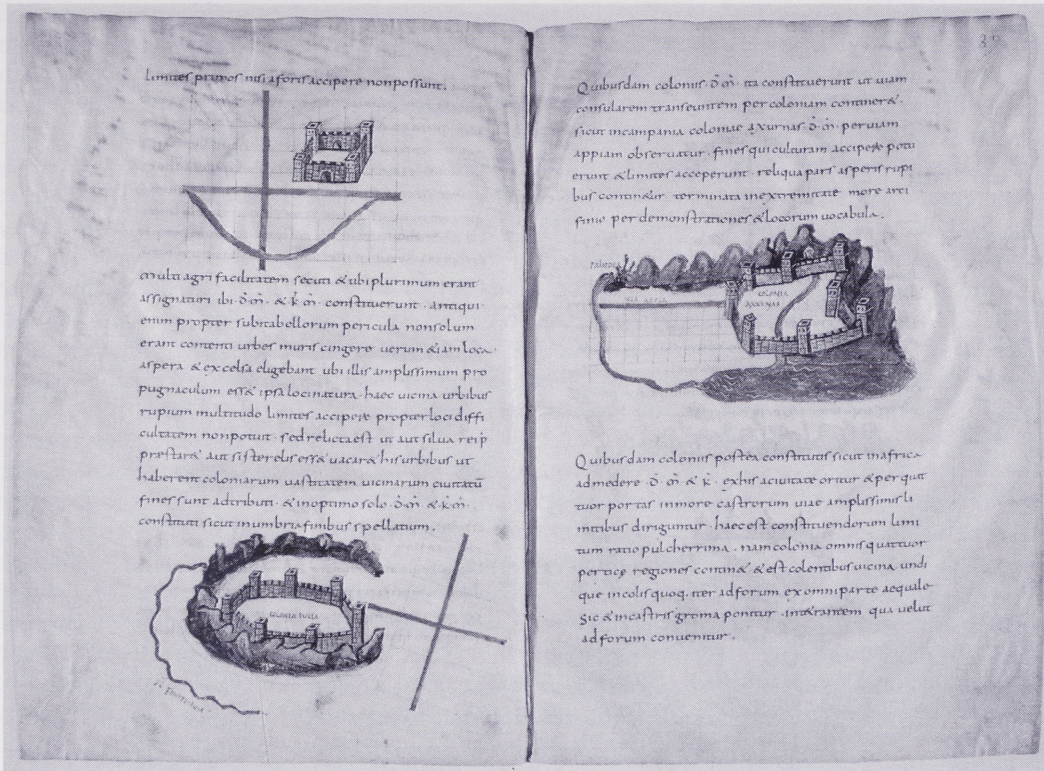 limites primos nisi aforis accipere nonpossunt.
multi agri facilitatem secuti & ubi plurimum erant
assignaturi ibi · d̄ · m̄ · & k̄ · m̄ · constituerunt · antiqui
enim propter subitabellorum pericula nonsolum
erant contenti urbes muris cingere uerum & iam loca
aspera & excelsa eligebant ubi illis amplissimum pro
pugnaculum ess& ipsa locinatura · haec uicina urbibus
rupium multitudo limites accipere propter loci diffi
cultatem nonpotuit · sed relicta est ut aut silua reip
prestar& aut si sterelis ess& uacar& his urbibus ut
haberent coloniarum uastitatem uicinarum ciuitatū
fines sunt adtributi · & inoptimo solo · d̄ · m̄ · & k̄ · m̄ ·
constituti sicut inumbria finibus spellatium.
COLONIA IULIA
Quibusdam coloniis · d̄ · m̄ · ita constituerunt ut uiam
consularem transeuntem per coloniam continer& ·
sicut incampania coloniae axurnas · d̄ · m̄ · per uiam
appiam obseruatur · fines qui culturam accipere potu
erunt & limites acceperunt · reliqua pars asperis rupi
bus contin&ur terminata inextremitate more arci
finio per demonstrationes & locorum uocabula.
UIA APPIA
COLONIA
AXURNAS
Quibusdam coloniis postea constitutis sicut inafrica
admedere · d̄ · m̄ · & k̄ · exhis aciuitate oritur & per quat
tuor portas inmore castrorum uiae amplissimis li
mitibus diriguntur · haec est constituendorum limi
tum ratio pulcherrima · nam colonia omnis quattuor
perticę regiones contin& & est colentibus uicina undi
que incolis quoq. iter adforum ex omni parte aequale ·
sic & incastris groma ponitur · in&rantem qua uelut
ad forum conuenitur.